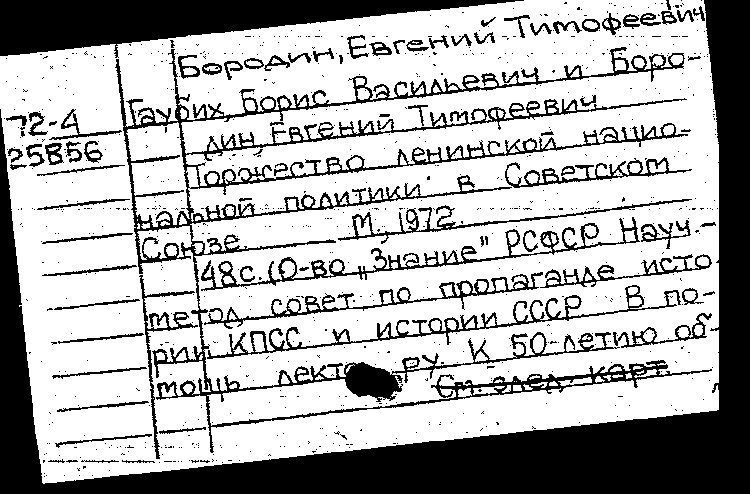 Бородин, Евгений Тимофеевич
72-4
25856
Таубих, Борис Васильевич и Боро-
дин, Евгений Тимофеевич.
Торжество ленинской нацио-
нальной политики в Советском
Союзе. М., 1972.
48с. (О-во „Знание" РСФСР Науч.-
метод. совет по пропаганде исто-
рии КПСС и истории СССР В по-
мощь лектору. К 50-летию об-
См. след. карт.